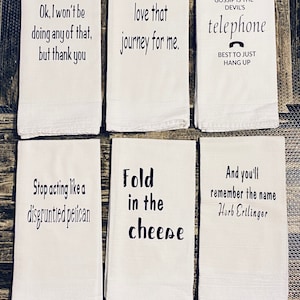 Ok, I won't be
doing any of that,
but thank you
love that
journey for me.
GOSSIP IS THE
DEVILS
telephone
BEST TO JUST
HANG UP
Stop acting like a
disgruntled pelican
Fold
in the
cheese
And you'll
remember the name
Herb Ertlinger